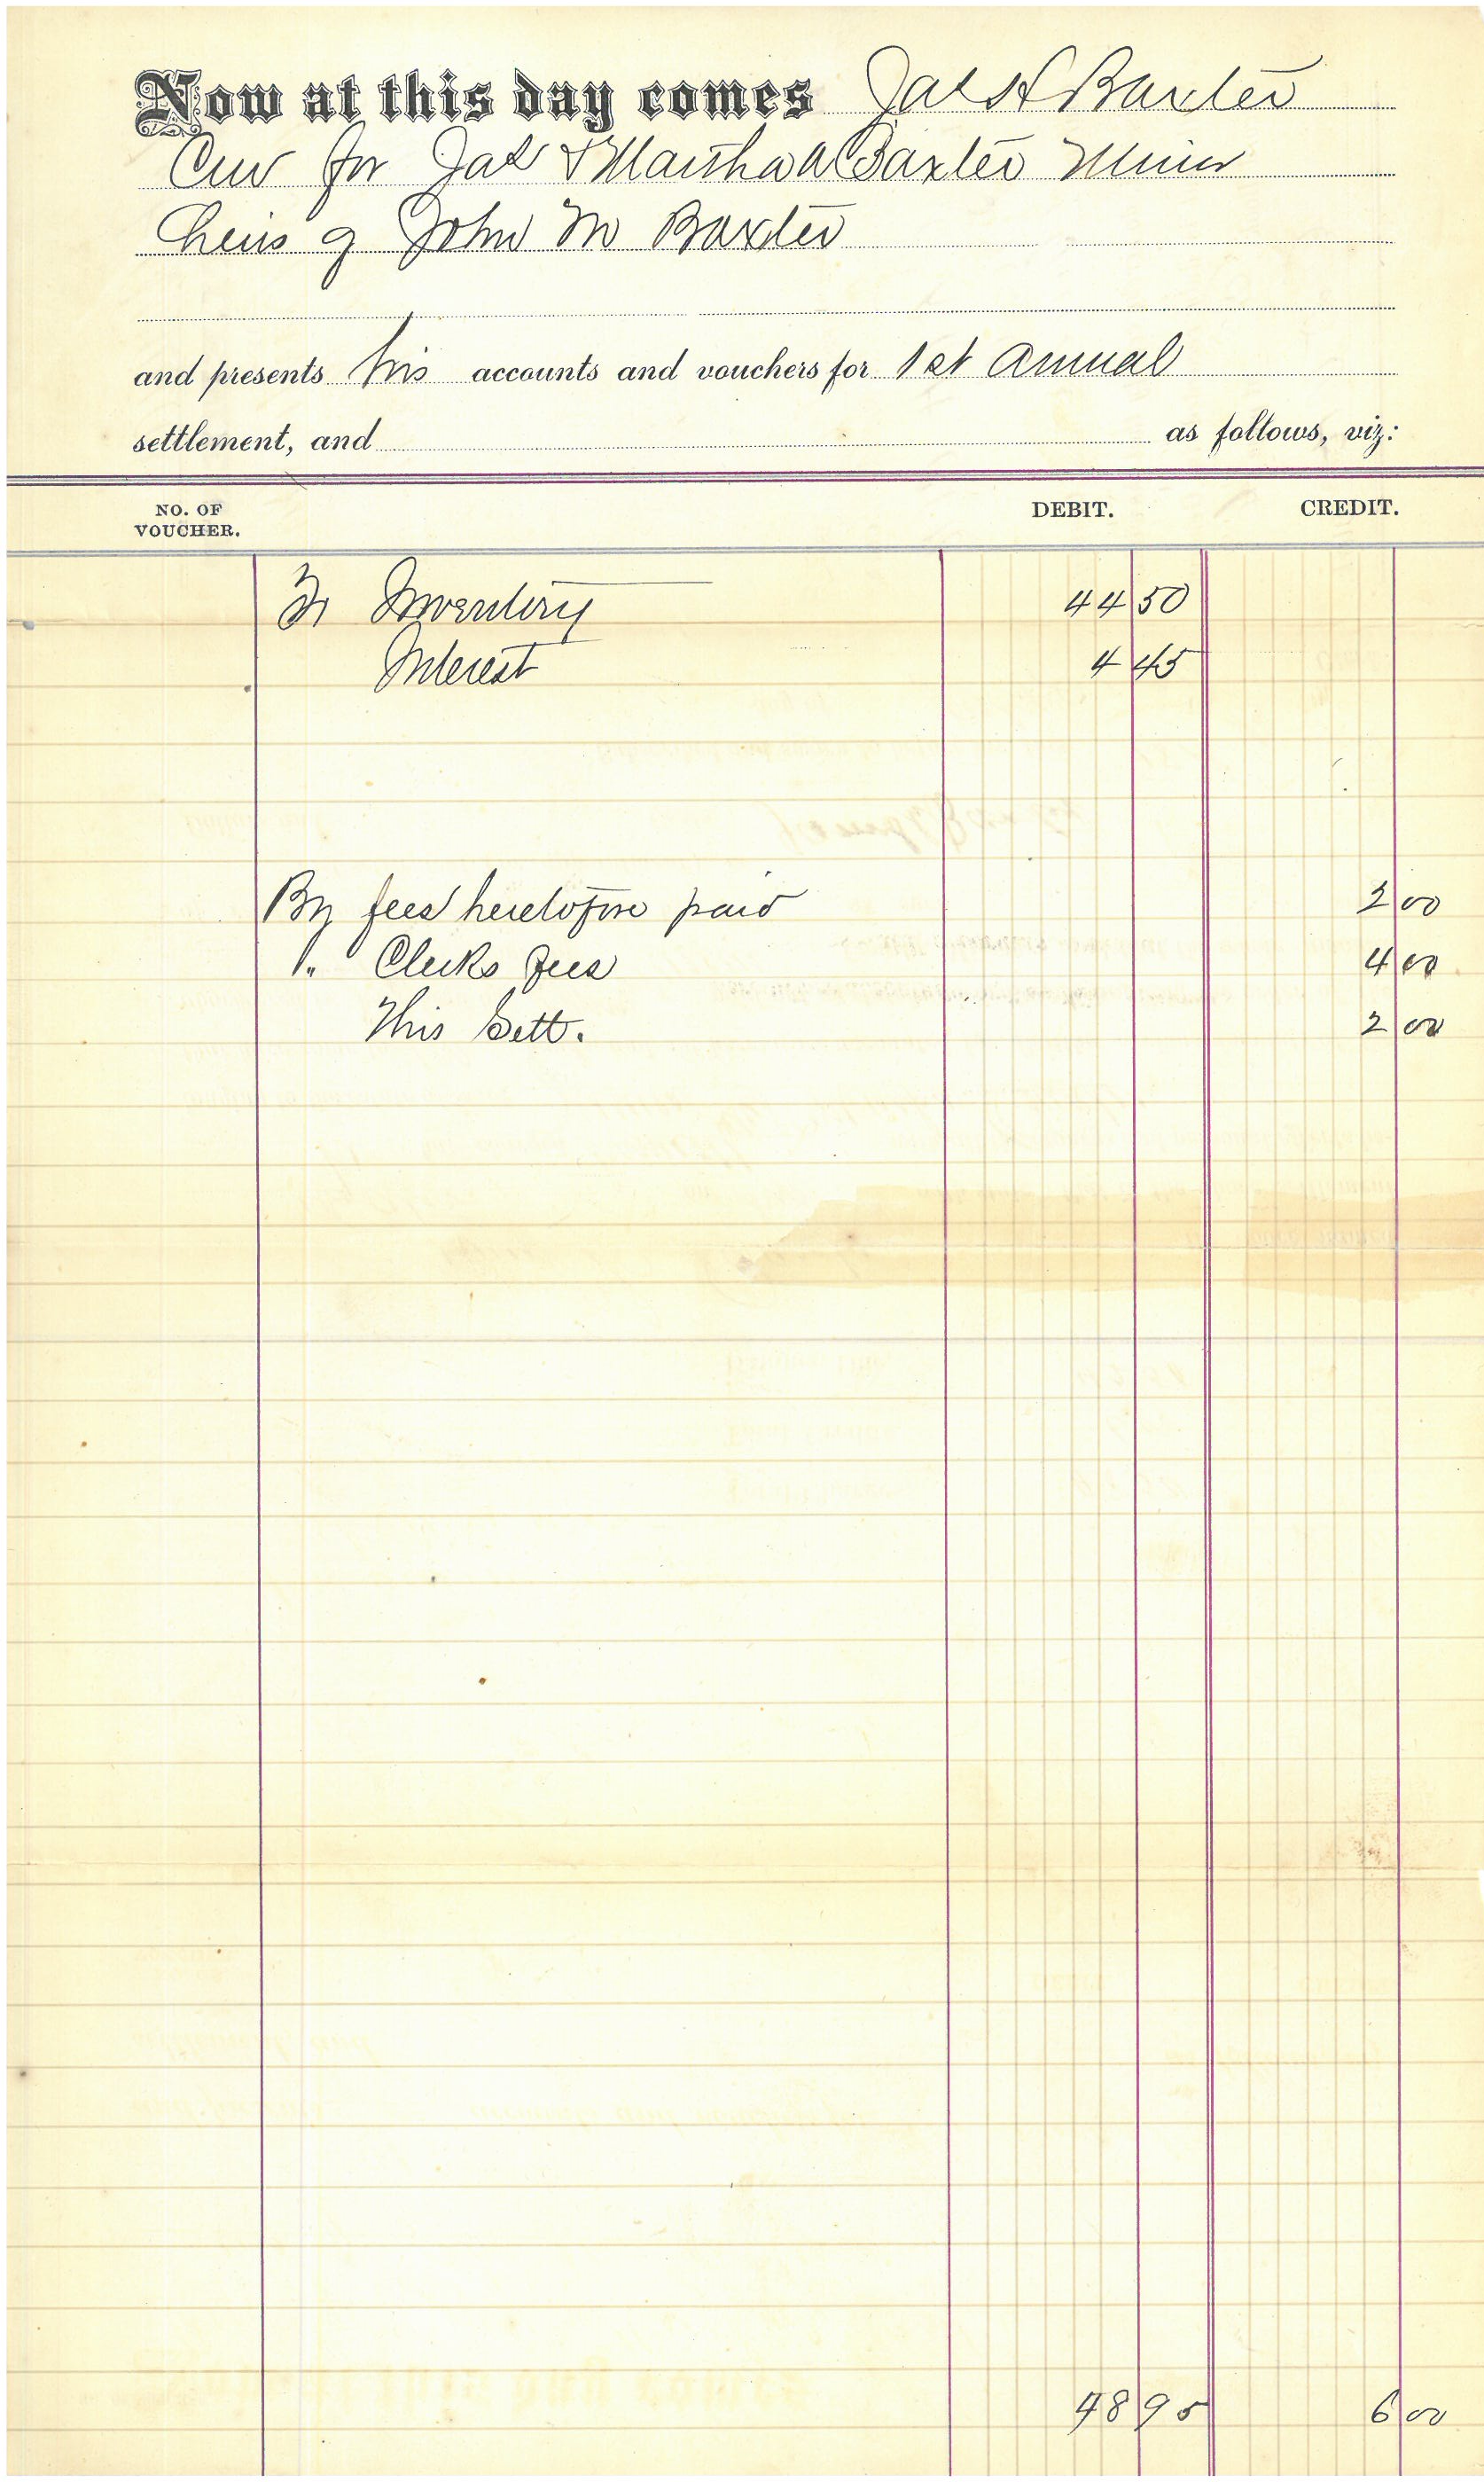 Now at this day comes Jas H Baxter
Cur for Jas & Martha A Baxter Minor
heirs of John M Baxter
and presents his accounts and vouchers for 1st Annual
settlement, and as follows, viz:
NO. OF VOUCHER. DEBIT. CREDIT.
To Inventory 44 50
Interest 4 45
By fees heretofore paid 2 00
" Clerks fees 4 00
This Sett. 2 00
48 95 6 00